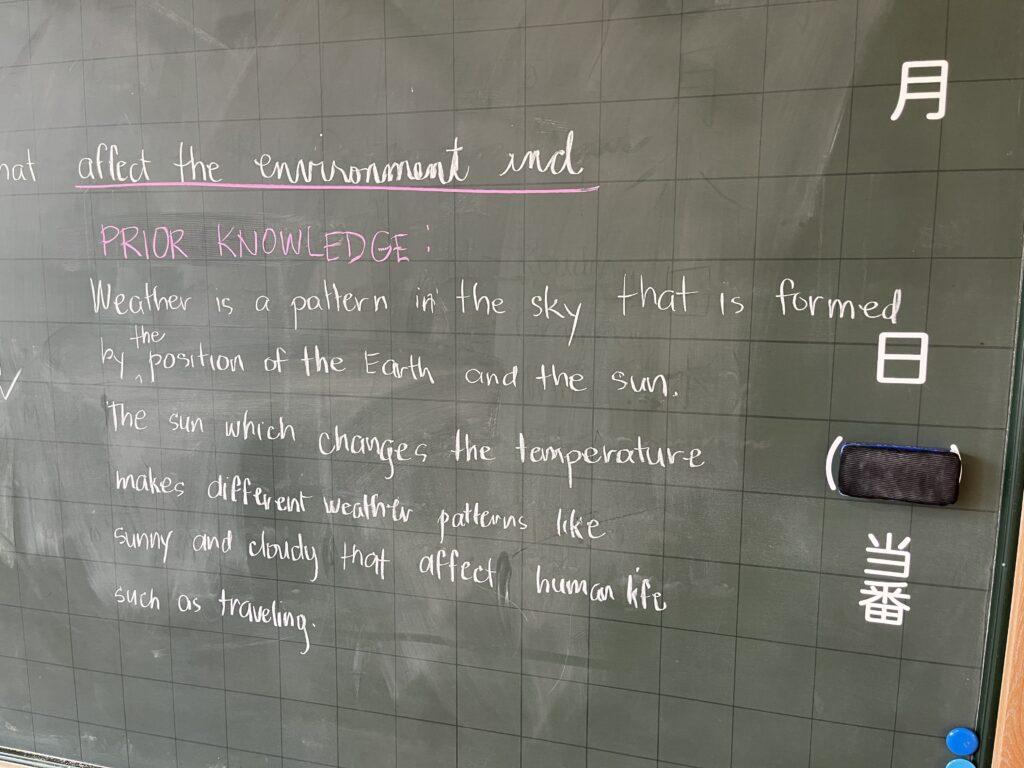 hat affect the environment and
PRIOR KNOWLEDGE:
Weather is a pattern in the sky that is formed
by the position of the Earth and the sun.
The sun which changes the temperature
makes different weather patterns like
sunny and cloudy that affect human life
such as traveling.
月
日
( )
当番